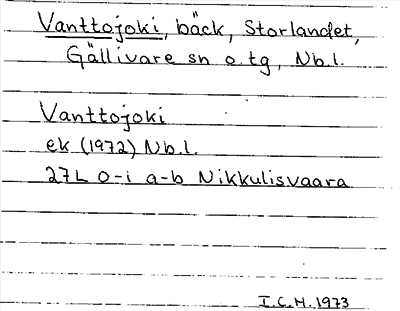 Vanttojoki, bäck, Storlandet,
Gällivare sn o. tg, Nb.l.
Vanttojoki
ek (1972) Nb.l.
27L 0-i a-b Nikkulisvaara
I.C.H. 1973